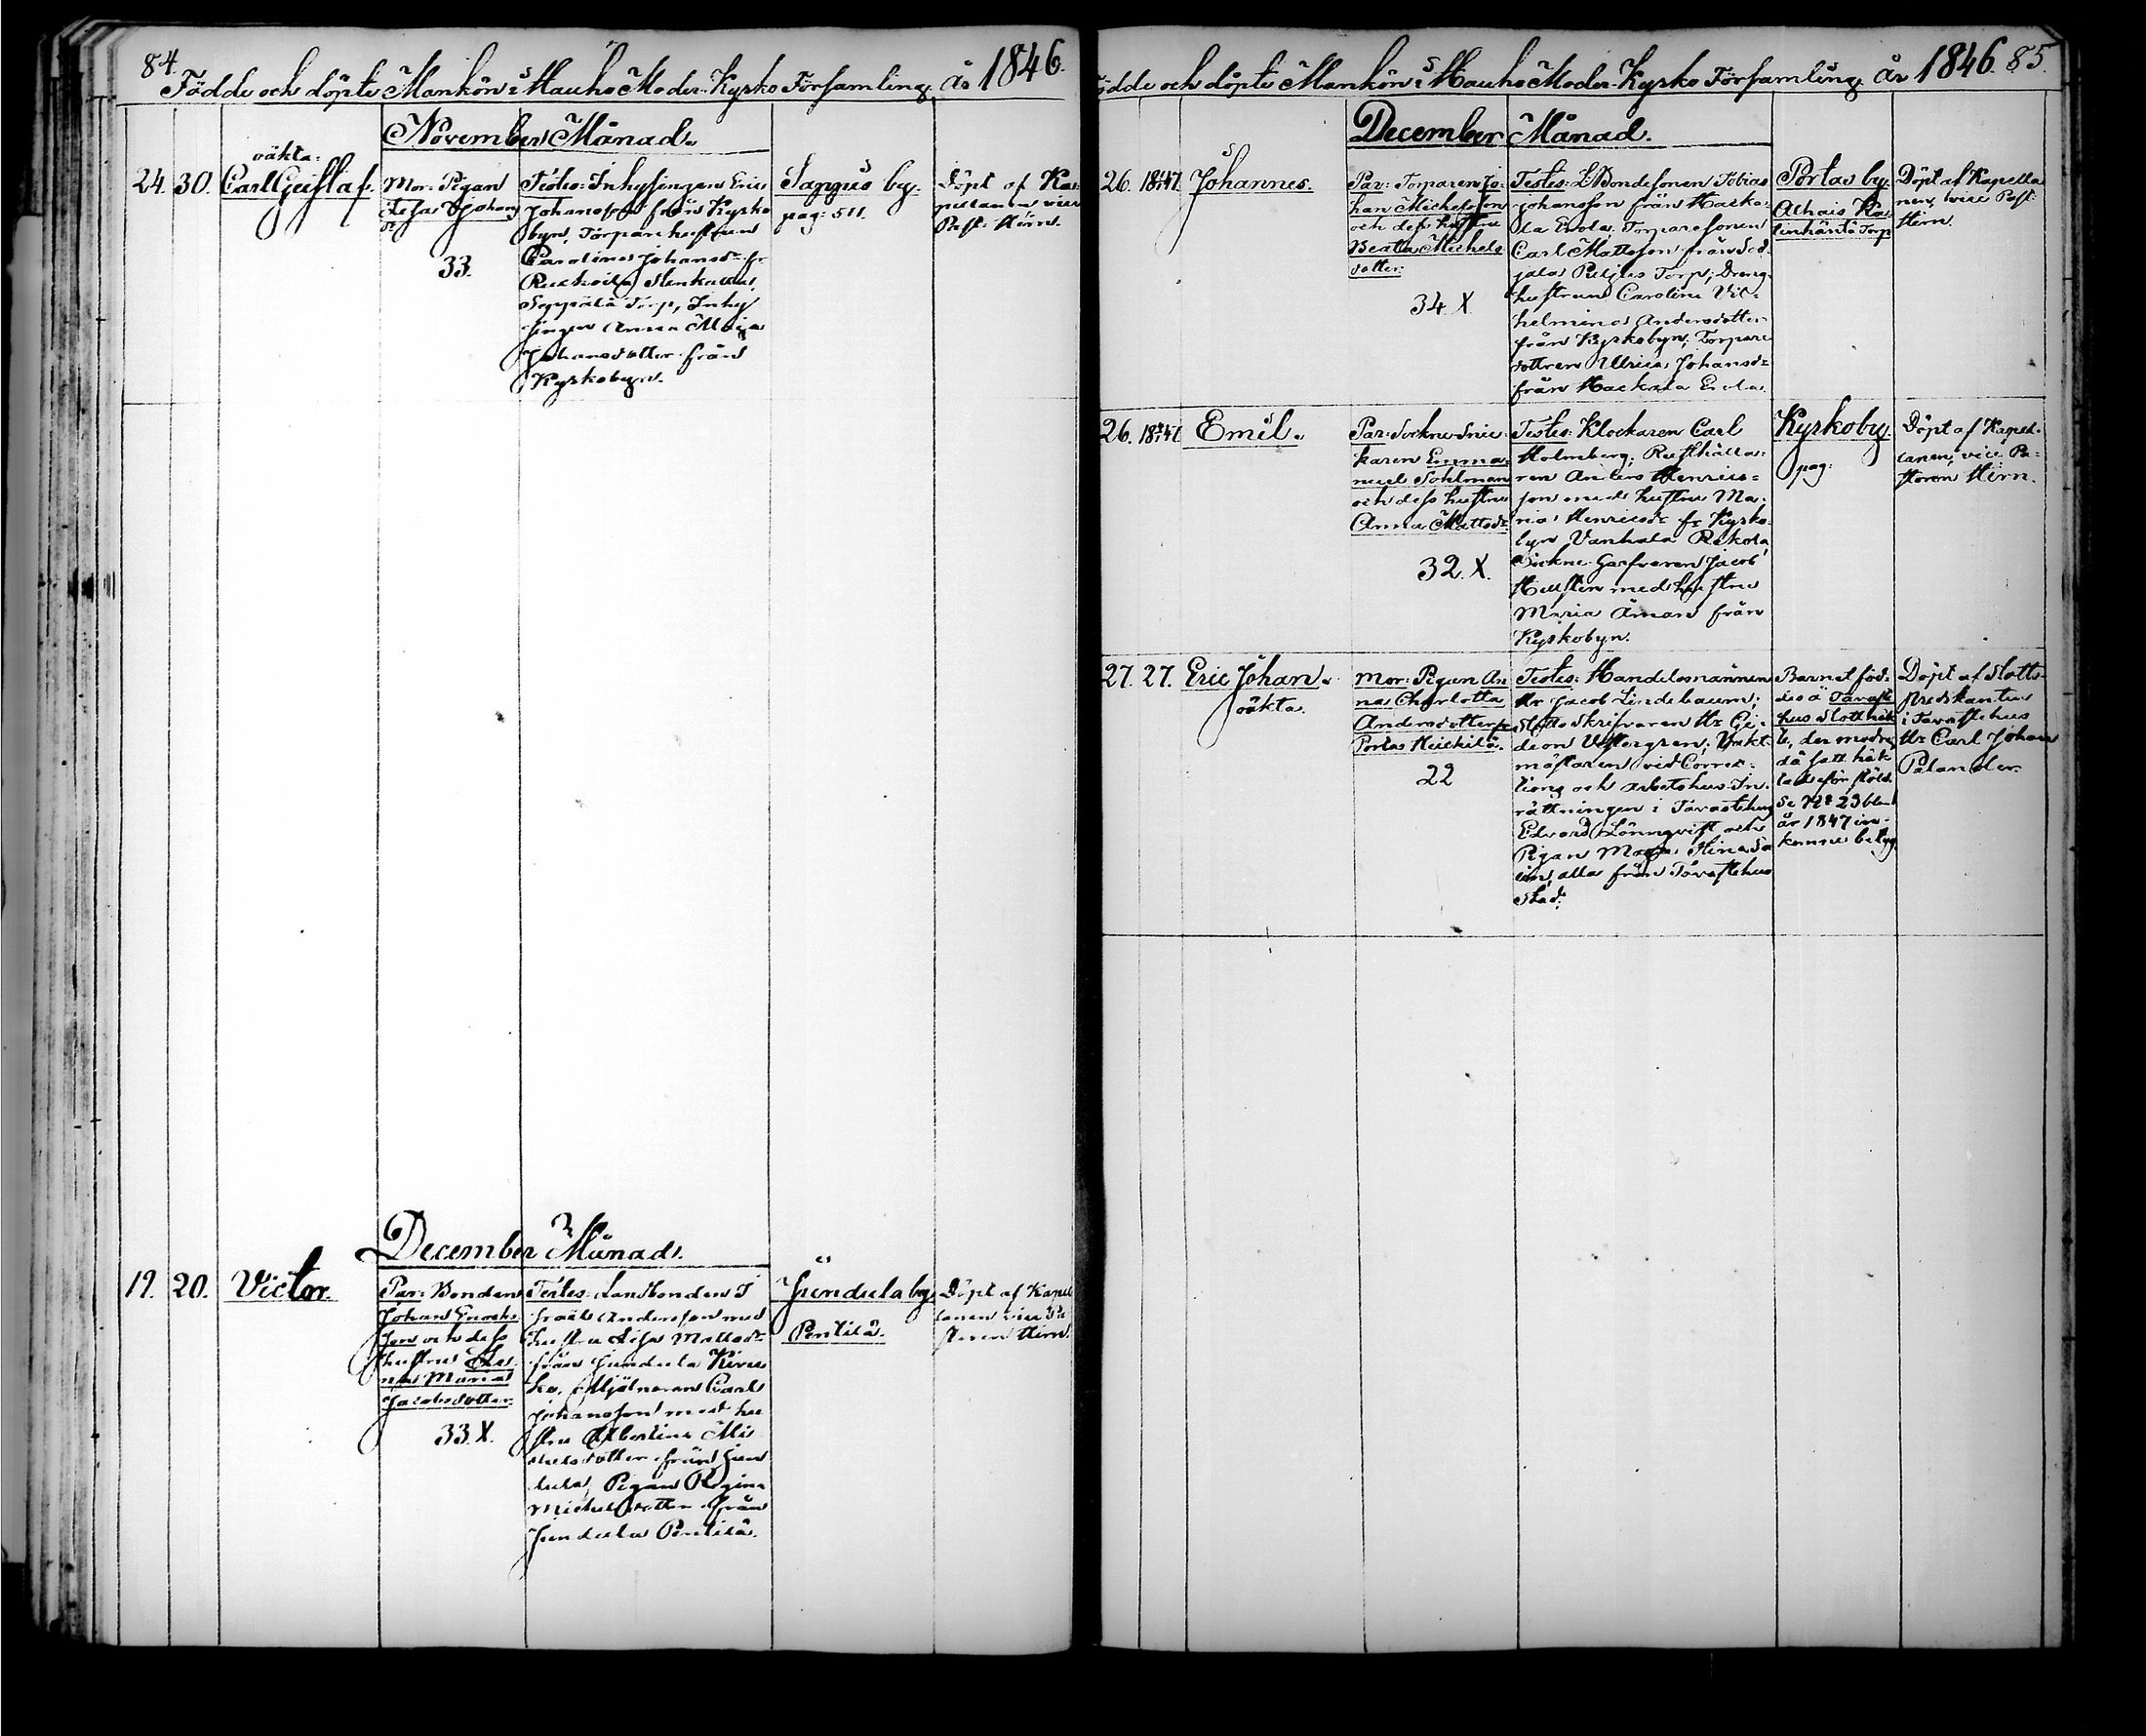 84.
Födde och döpte Mankön i Hauho Moder-Kyrko Församling, år 1846.
November Månad.
24. 30.
oäkta:
Carl Gustaf.
Mor: Pigan
Lisa Johans
dr
33.
Testes: Inhysingen Eric
Johansson från Kyrko
byn, Torpar hustrun
Carolina Johansdr fr
Seppälä Torp, Inhy
singen Anna Maja
Johansdotter från
Kyrkobyn.
Sappus by.
pag: 511.
Döpt af Ka-
pellanen vice
Past: Hirn.
December Månad.
19. 20. Victor.
Par: Bonden
Johan Enochs
son och dess
hustru
Maria
Jacobsdotter.
33. X.
Testes: Landbonden I
sraël Andersson med
hustru Lisa Mattsdr
från Jundula
Mjölnaren Carl
Johansson med hu
stru Albertina Mi
chelsdotter från Jun
dula, Pigan Regina
Michelsdotter från
Jundula Pentilä.
Jundula by
Pentilä.
Döpt af Kapel
lanen vice Pa
storen Hirn.
ödde och döpte Mankön i Hauho Moder-Kyrko Församling år 1846. 85.
December Månad.
26. 18 47 Johannes.
Par: Torparen Jo-
han Michelsson
och dess hustru
Beata Michels
dotter:
34. X.
Testes: L. Bondesonen Tobias
Johansson från Hacka-
la Erola, Torparesonen
Carl Mattsson från
Torp; Dräng
hustrun Carolina Vil-
helmina Andersdotter
från Kyrkobyn; Torpare
dottren Ulrica Johansdr
från Hackala Erola.
Portas by.
Torp
Döpt af Kapella
nen, vice Past:
Hirn.
26. 18 47 Emil.
Par: Sockne Snic-
karen Emma-
nuel Sohlman
och dess hustru
Anna Mattsdr
32. X.
Testes: Klockaren Carl
Holmberg; Rusthålla-
ren Anders Henrics-
son med hustru Ma-
ria Henricsdr fr Kyrko-
byn Vanhala
Sockne Garfvaren Jacob
med hustru
Maria Åman från
Kyrkobyn.
Kyrkoby.
pag:
Döpt af Kapel-
lanen, vice Pa-
storen Hirn.
27. 27. Eric Johan.
oäkta.
Mor: Pigan An
na Charlotta
Andersdotter fr
Portas Heickilä.
22
Testes: Handelsmannen
Hr Jacob Lindebaum;
Slotts Skrifvaren Hr Gi-
deon Vestergren; Vakt-
mästaren vid Correc-
tions och arbetshus In-
rättningen i Tavastehus
Edvard Lönnqvist och
Pigan Maja Stina
alla från Tavastehus
Stad.
Barnet föd-
des å Tavaste
hus Slottshäk
te, der modren
då satt häk
tad för stöld.
Se No 23 bland
år 1847 in-
komne betyg
Döpt af Slotts
Predikanten
i Tavastehus
Hr Carl Johan
Palander.